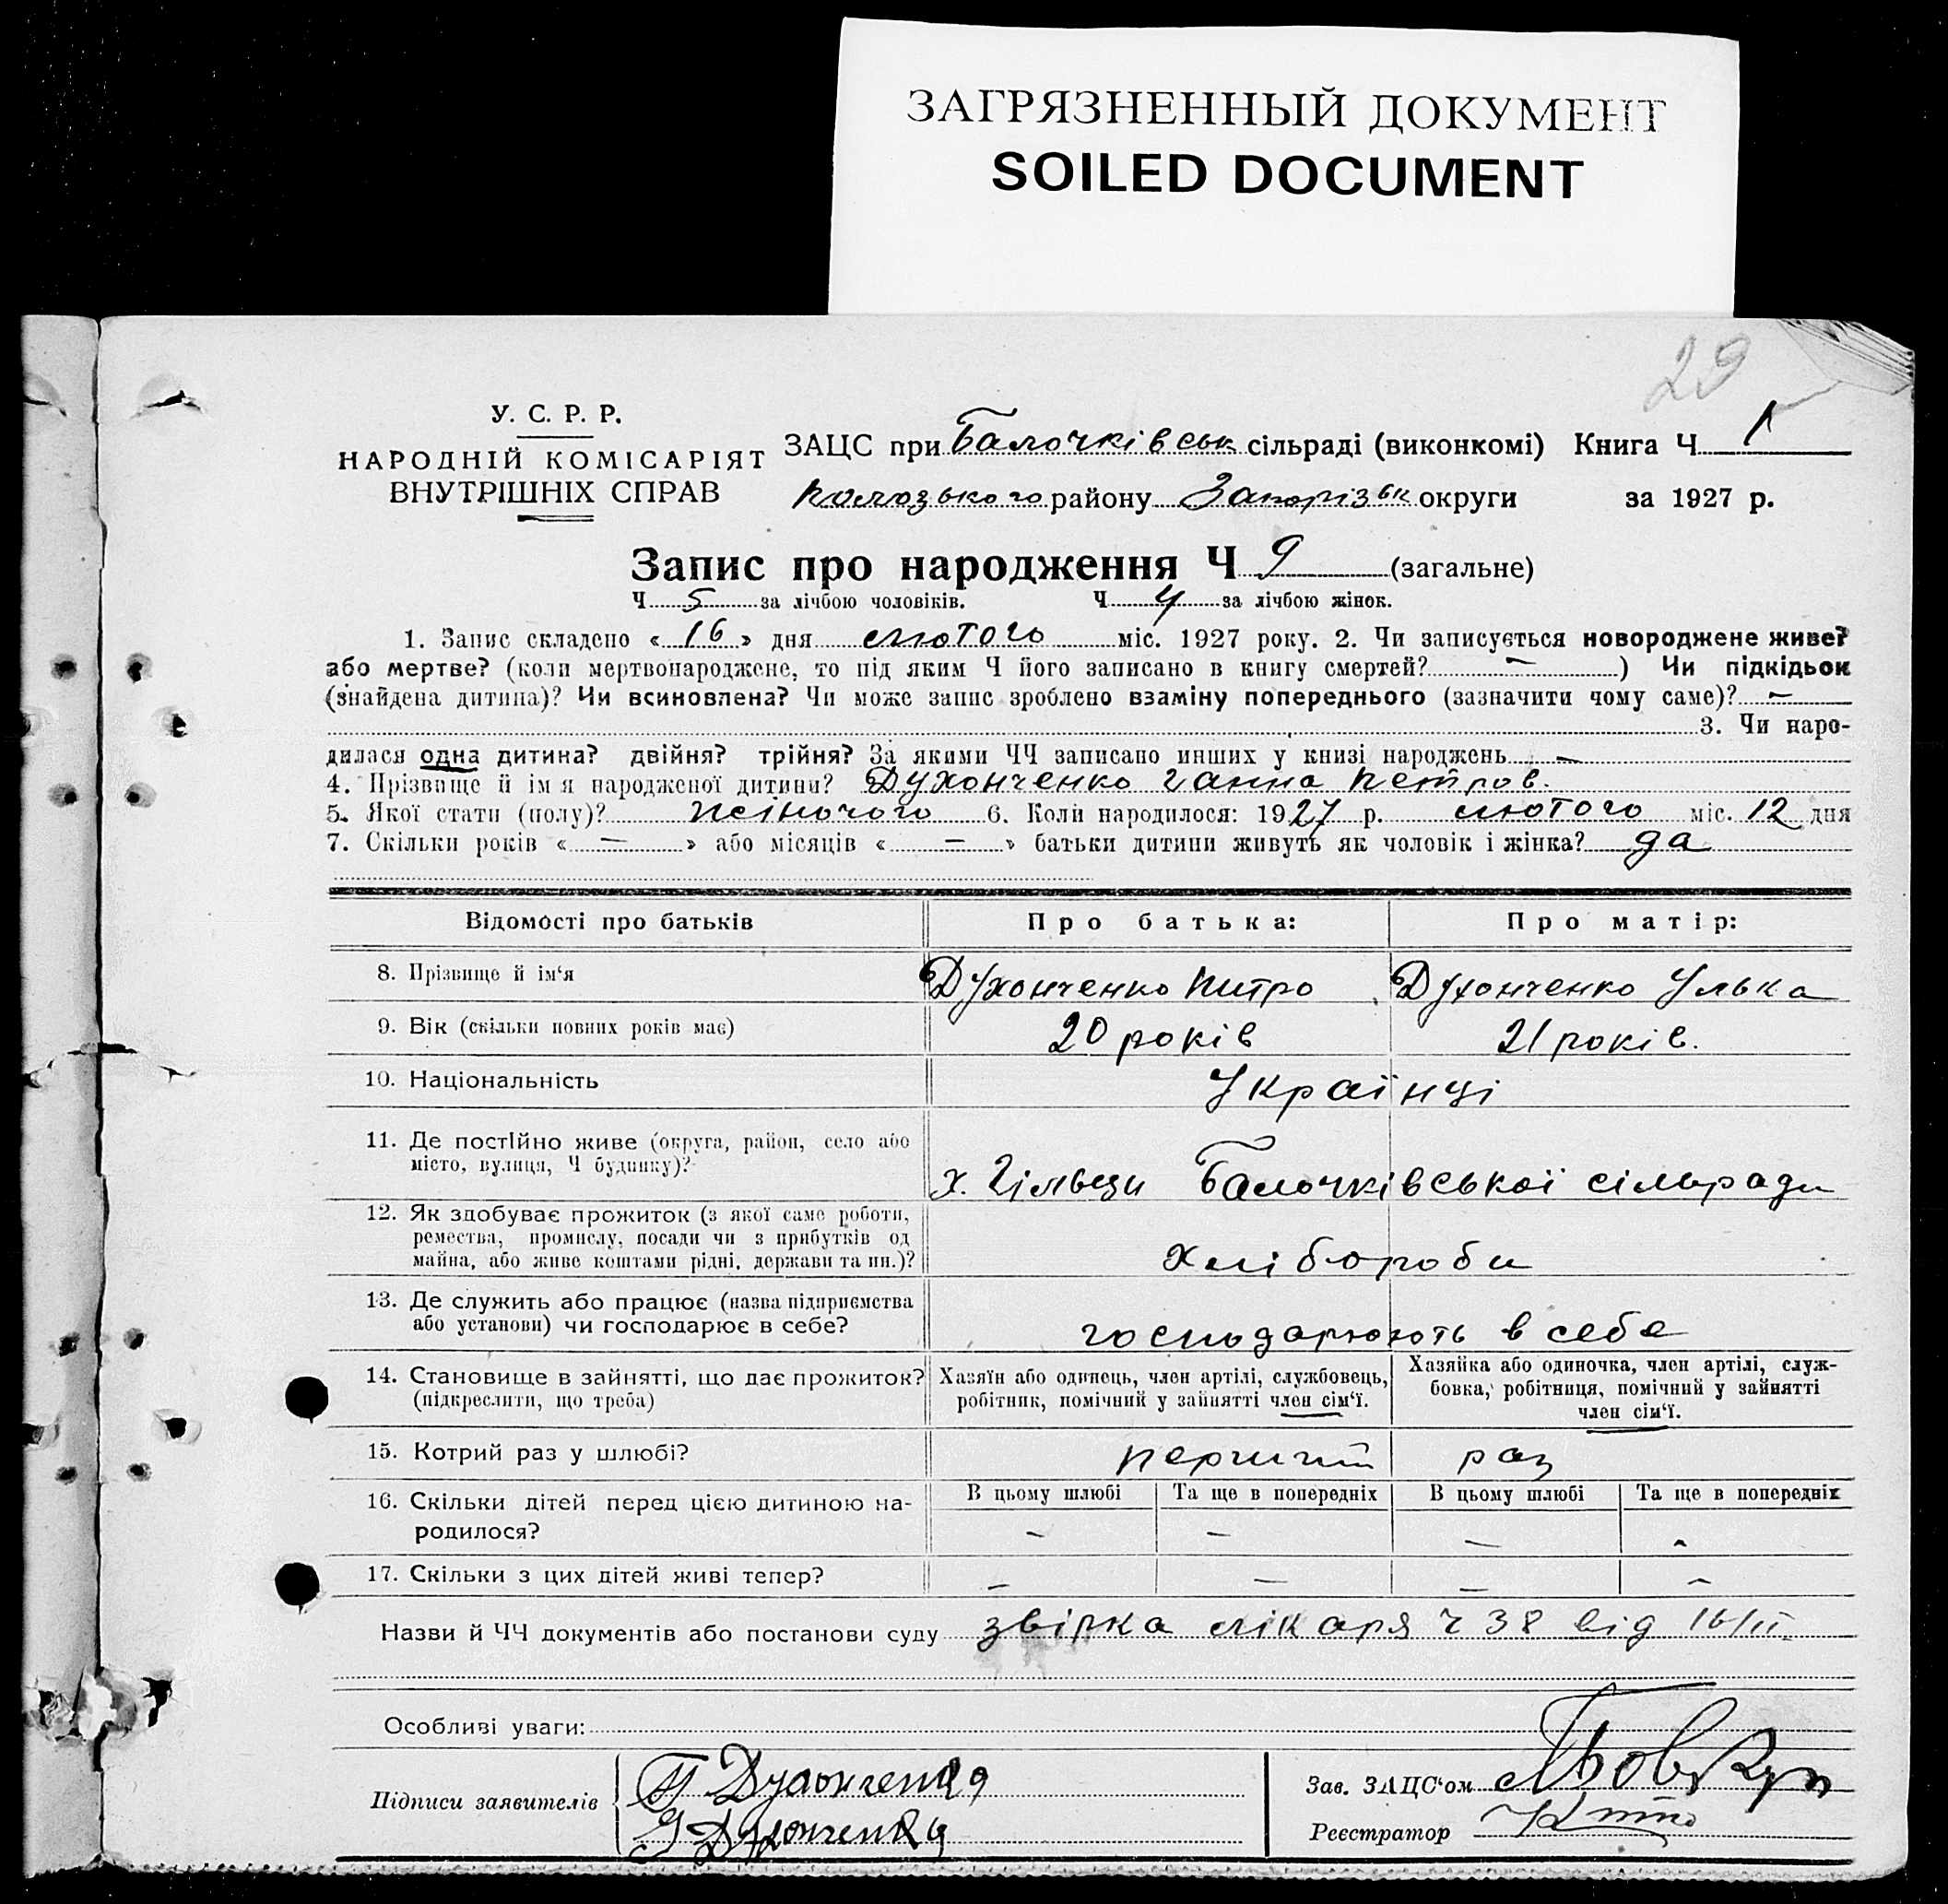 ЗАГРЯЗНЕННЫЙ ДОКУМЕНТ
SOILED DOCUMENT
29
У. С. Р. Р.
НАРОДНІЙ КОМІСАРІЯТ
ВНУТРІШНІХ СПРАВ
ЗАЦС при Балочківськ сільраді (виконкомі) Книга Ч 1
району Запорізьк округи за 1927 р.
Запис про народження Ч 9 (загальне)
Ч 5 за лічбою чоловіків. Ч 4 за лічбою жінок.
1. Запис складено « 16 » дня лютого міс. 1927 року. 2. Чи записується новороджене живе?
або мертве? (коли мертвонароджене, то під яким Ч його записано в книгу смертей? — ) Чи підкідьок
(знайдена дитина)? Чи всиновлена? Чи може запис зроблено взаміну попереднього (зазначити чому саме)? —
3. Чи наро-
дилася одна дитина? двійня? трійня? За якими ЧЧ записано инших у книзі народжень —
4. Прізвище й ім'я народженої дитини? Духонченко Ганна Петров.
5. Якої стати (полу)? жіночого 6. Коли народилося: 1927 р. лютого міс. 12 дня
7. Скільки років « — » або місяців « — » батьки дитини живуть як чоловік і жінка? да
Відомості про батьків Про батька: Про матір:
8. Прізвище й ім‘я Духонченко Питро Духонченко Улька
9. Вік (скільки повних років має) 20 років 21 років.
10. Національність Українці
11. Де постійно живе (округа, район, село або
місто, вулиця, Ч будинку)? х. Балочківської сільради
12. Як здобуває прожиток (з якої саме роботи,
ремества, промислу, посади чи з прибутків од
майна, або живе коштами рідні, держави та ин.)? хлібороби
13. Де служить або працює (назва підприємства
або установи) чи господарює в себе? господарюють в себе
14. Становище в зайнятті, що дає прожиток?
(підкреслити, що треба)
Хазяїн або одинець, член артілі, службовець,
робітник, помічний у зайнятті член сім‘ї.
Хазяйка або одиночка, член артілі, служ-
бовка, робітниця, помічний у зайнятті
член сім‘ї.
15. Котрий раз у шлюбі? перший раз
16. Скільки дітей перед цією дитиною на-
родилося?
В цьому шлюбі Та ще в попередніх В цьому шлюбі Та ще в попередніх
— — — —
17. Скільки з цих дітей живі тепер? — — — —
Назви й ЧЧ документів або постанови суду звірка лікаря ч 38 від 16/II
Особливі уваги:
Підписи заявителів П Духонченко
У Духонченко
Зав. ЗАЦС‘ом
Реєстратор